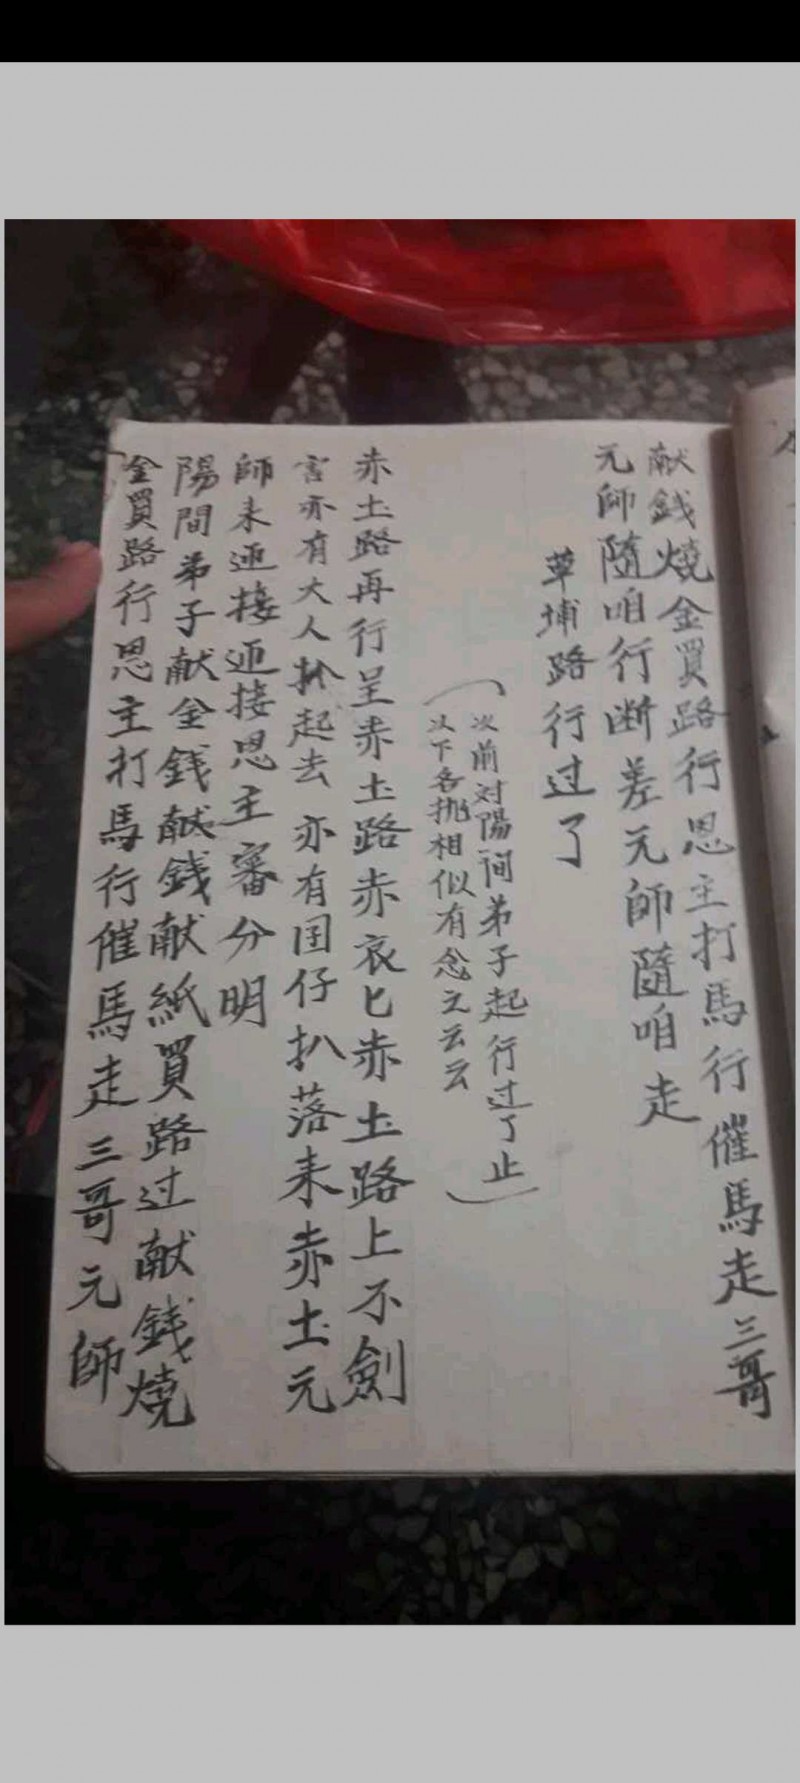 献錢燒金買路行恩主打馬行催馬走三哥
元師隨咱行断差元師隨咱走
草埔路行过了
(次前对陽間弟子起行过了止)
以下各挑相似有念之云云
赤土路再行呈赤土路赤哀匕赤土路上不劍
言亦有大人扒起去亦有囝仔扒落来赤土元
師来迎接迎接恩主審分明
陽間弟子献金錢献錢献紙買路过献錢燒
金買路行恩主打馬行催馬走三哥元師